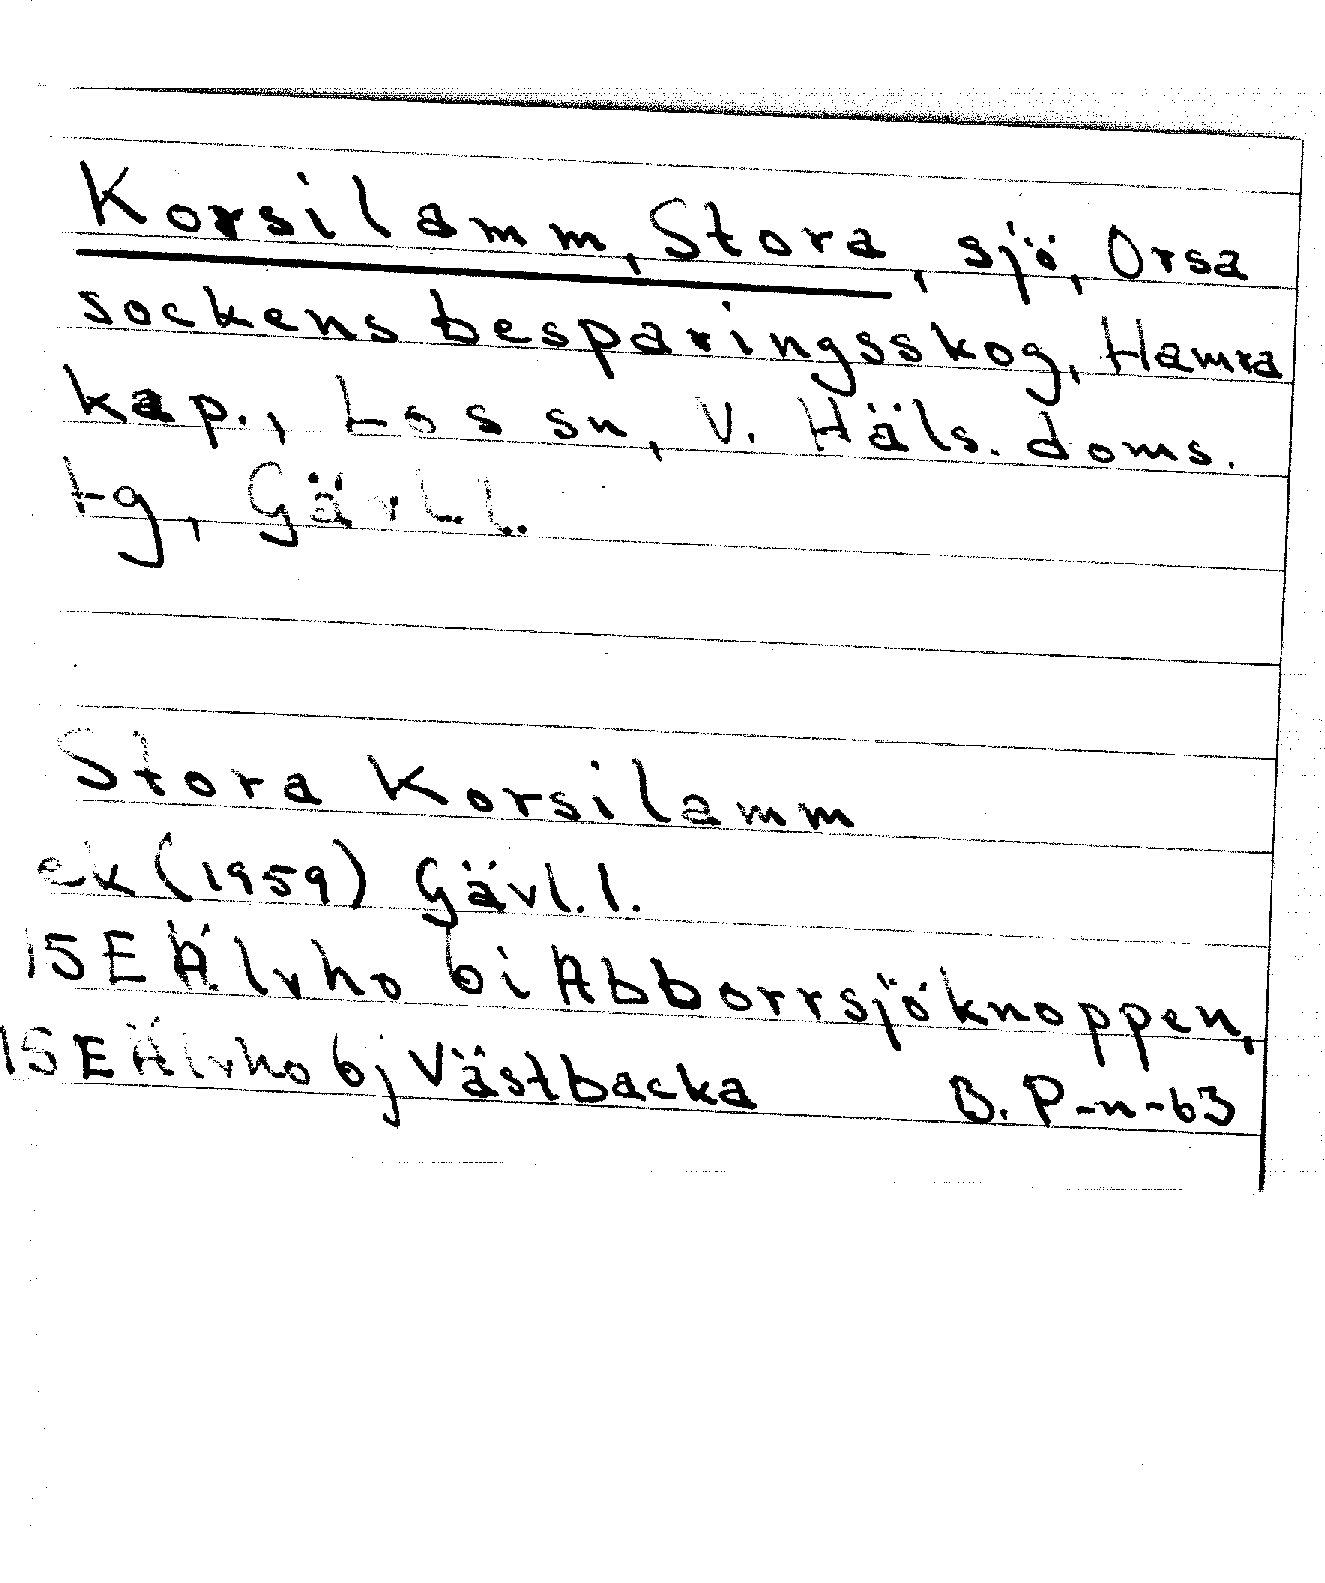 Korsilamm, Stora, sjö, Orsa
sockens besparingsskog, Hamra
kap., Los sn, V. Häls. doms.
tg, Gävl.l.
Stora Korsilamm
ek (1959) Gävl.l.
15E Älvho 6i Abborrsjöknoppen,
15E Älvho 6j Västbacka B. P-n-63